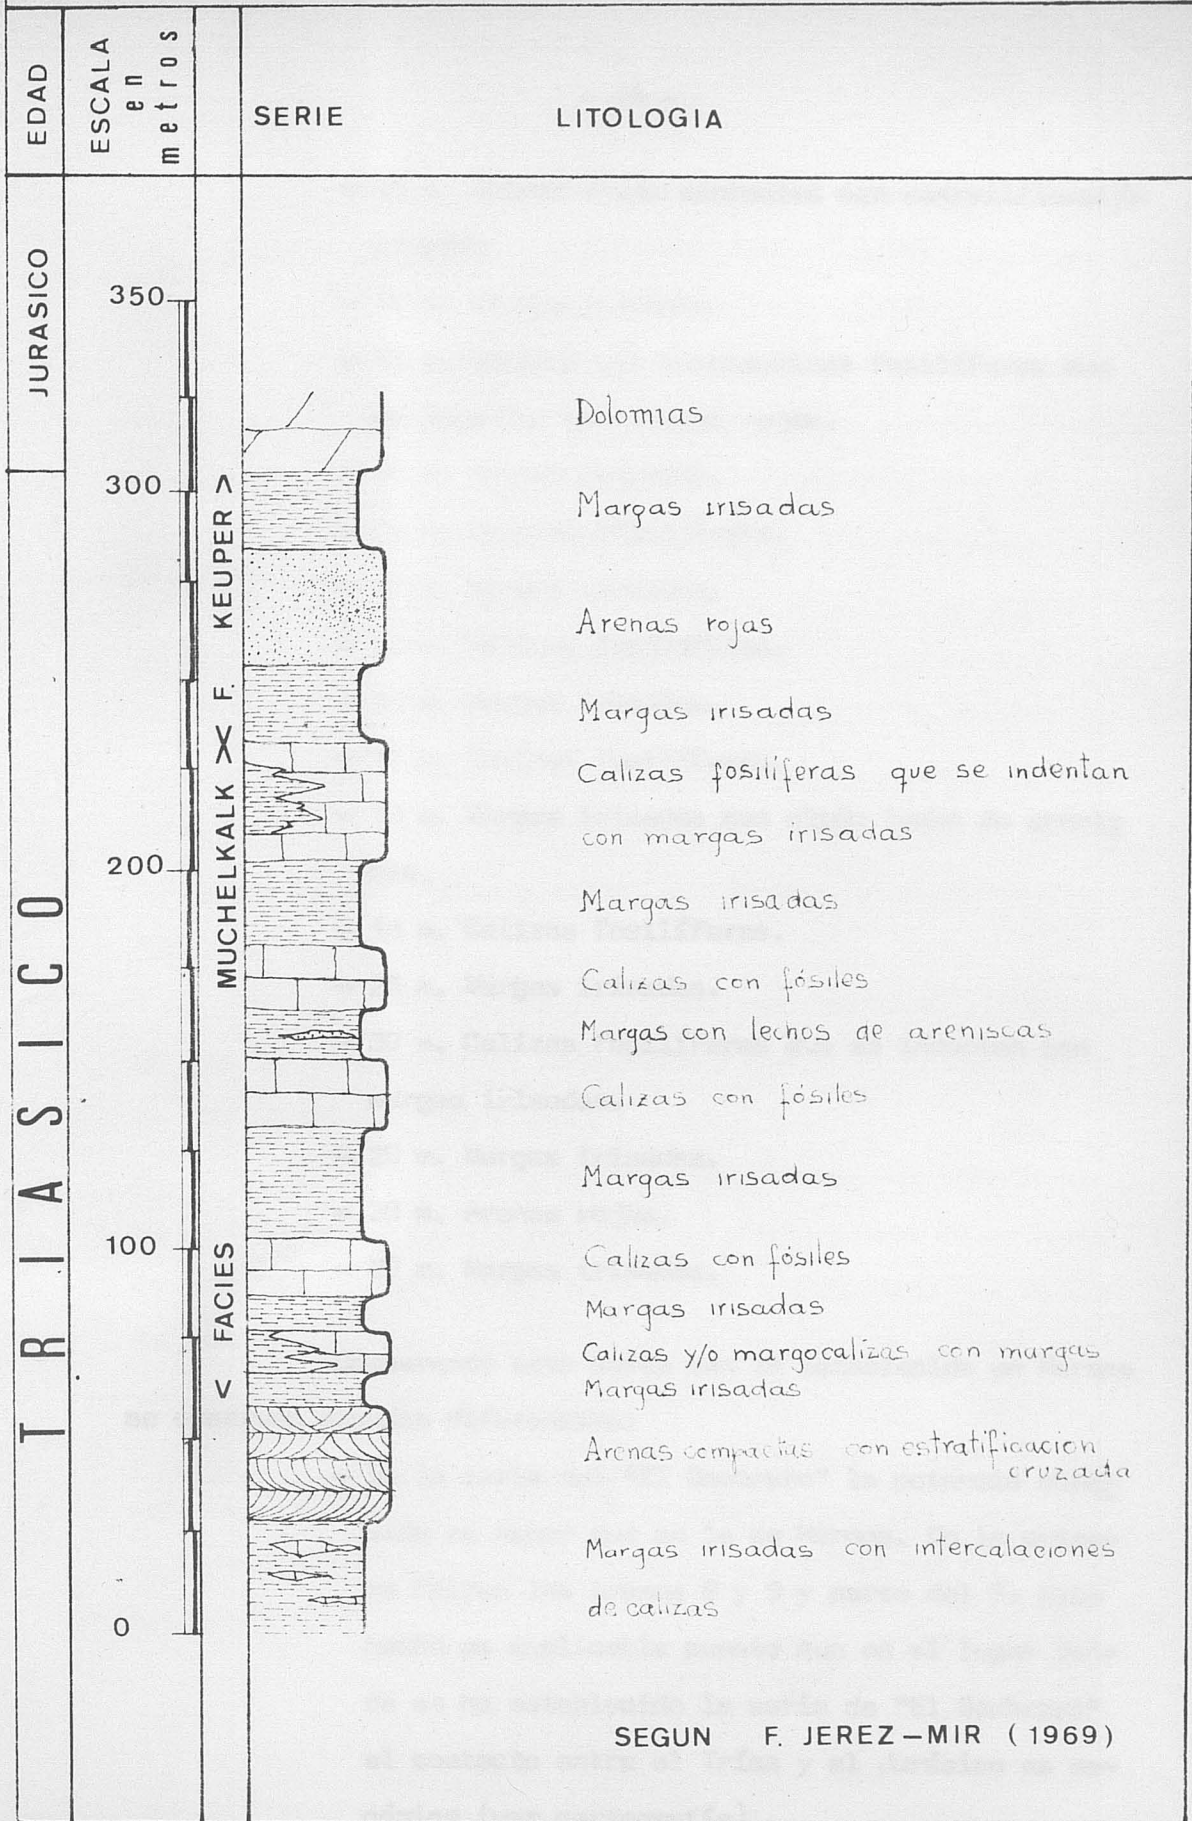 EDAD
ESCALA
en
metros
SERIE
LITOLOGIA
JURASICO
TRIASICO
350
300
200
100
0
< FACIES MUCHELKALK >< F. KEUPER >
Dolomias
Margas irisadas
Arenas rojas
Margas irisadas
Calizas fosilíferas que se indentan
con margas irisadas
Margas irisadas
Calizas con fósiles
Margas con lechos de areniscas
Calizas con fósiles
Margas irisadas
Calizas con fósiles
Margas irisadas
Calizas y/o margocalizas con margas
Margas irisadas
Arenas compactas con estratificacion
cruzada
Margas irisadas con intercalaciones
de calizas
SEGUN F. JEREZ-MIR (1969)